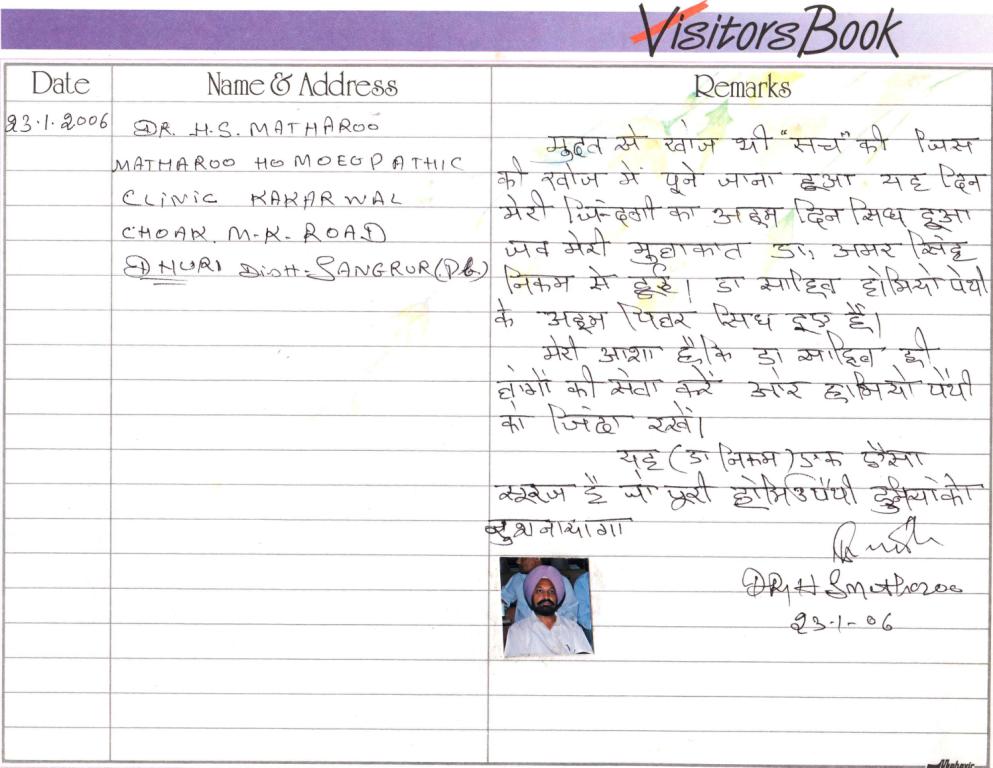 Visitors Book
Date Name & Address Remarks
23.1.2006 DR. H.S. MATHAROO
MATHAROO HOMOEOPATHIC
CLINIC KAKARWAL
CHOAK. M-K-ROAD
DHURI Distt-SANGRUR (Pb)
मुद्दत से खोज थी "सच" की जिस
की खोज में पूने जाना हुआ यह दिन
मेरी जिन्दगी का अहम दिन सिध हुआ
जब मेरी मुलाकात डा. अमर सिंह
निकम से हुई। डा साहिब होमियोपेथी
के अहम पिलर सिध हुए हैं।
मेरी आशा है कि डा साहिब ही
लोगों की सेवा करें और होमियो पैथी
को जिंदा रखें।
यह (डा निकम) इक ऐसा
सूरज है जो पूरी होमिउपैथी दुनिया को
DR H S Matharoo
23-1-06